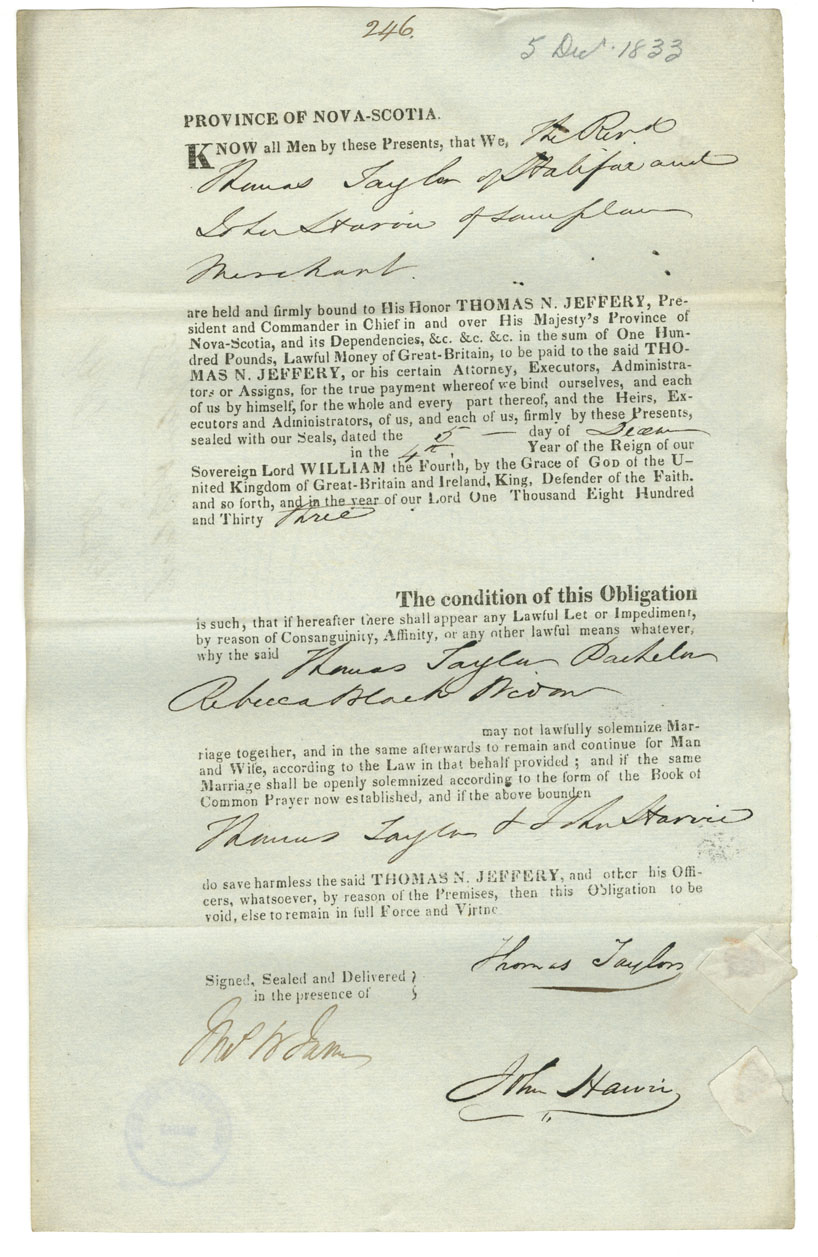 246.
5 Decr. 1833
PROVINCE OF NOVA-SCOTIA.
KNOW all Men by these Presents, that We, The Revd
Thomas Taylor of Halifax and
John Harvie of same place
Merchant.
are held and firmly bound to His Honor THOMAS N. JEFFERY, Pre-
sident and Commander in Chief in and over His Majesty's Province of
Nova-Scotia, and its Dependencies, &c. &c. &c. in the sum of One Hun-
dred Pounds, Lawful Money of Great-Britain, to be paid to the said THO-
MAS N. JEFFERY, or his certain Attorney, Executors, Administra-
tors or Assigns, for the true payment whereof we bind ourselves, and each
of us by himself, for the whole and every part thereof, and the Heirs, Ex-
ecutors and Administrators, of us, and each of us, firmly by these Presents,
sealed with our Seals, dated the 5 — day of Decem
in the 4th. Year of the Reign of our
Sovereign Lord WILLIAM the Fourth, by the Grace of GOD of the U-
nited Kingdom of Great-Britain and Ireland, King, Defender of the Faith.
and so forth, and in the year of our Lord One Thousand Eight Hundred
and Thirty three
The condition of this Obligation
is such, that if hereafter there shall appear any Lawful Let or Impediment,
by reason of Consanguinity, Affinity, or any other lawful means whatever,
why the said Thomas Taylor Bachelor
Rebecca Black Widow
may not lawfully solemnize Mar-
riage together, and in the same afterwards to remain and continue for Man
and Wife, according to the Law in that behalf provided ; and if the same
Marriage shall be openly solemnized according to the form of the Book of
Common Prayer now established, and if the above bounden
Thomas Taylor & John Harvie
do save harmless the said THOMAS N. JEFFERY, and other his Offi-
cers, whatsoever, by reason of the Premises, then this Obligation to be
void, else to remain in full Force and Virtue
Thomas Taylor
Signed, Sealed and Delivered }
in the presence of }
John Harvie